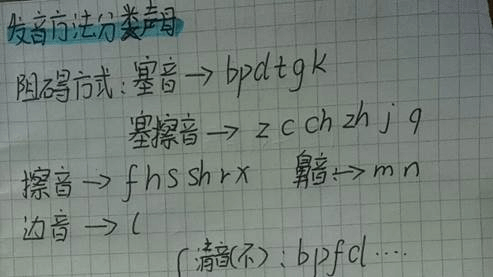 发音方法分类声母
阻碍方式：塞音→bpdtgk
塞擦音→z c ch zh j q
擦音→f h s sh r x 鼻音→m n
边音→l
清音(不)：bpfd....